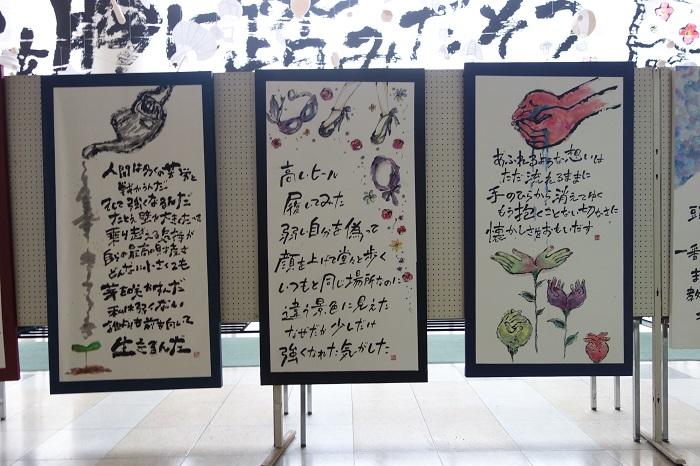 人間は多くの苦労と
戦かうんだ
そして強くなるんだ
たとえ壁が大きくたって
乗り越える気持が
自分の最高の財産さ
どんなに小さくても
芽を咲かすんだ
私は弱くない
生きるんだ
高いヒール
履してみた
弱い自分を偽って
顔を上げて堂々と歩く
いつもと同じ場所なのに
違う景色に見えた
なぜだか少しだけ
強くなれた気がした
あふれるような想いは
ただ流れるままに
手のひらから消えてゆく
もう抱くことない切なさに
懐かしさをおもいだす